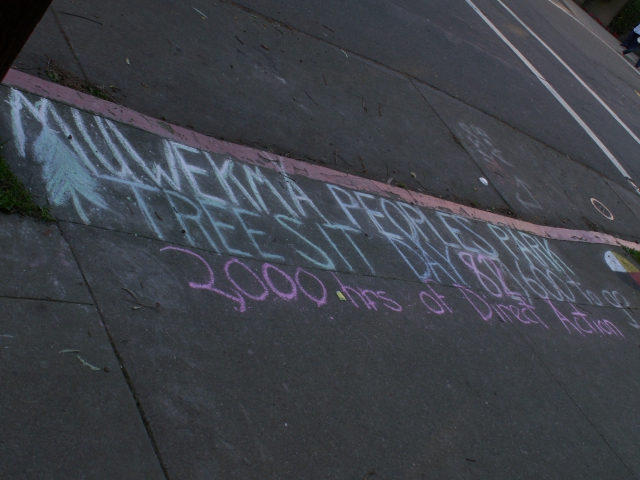 MUWEKMA PEOPLES PARK
TREESIT DAY to go
2,000 hrs of Direct Action